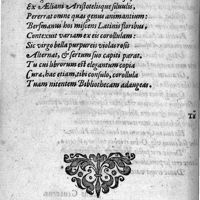 Ex Æliani Aristotelisque silvulis,
Pererrat omne quae genus animantium:
Bersmanus hos miscens Latinis floribus
Contexuit variam ex eis corollulam:
Sic virgo bella purpureis violas rosis
Alternat, & sertum suo capiti parat.
Tu cui librorum est elegantum copia
Cura, hac etiam, tibi consulo, corollula
Tuam nitentem Bibliothecam adaugeas.